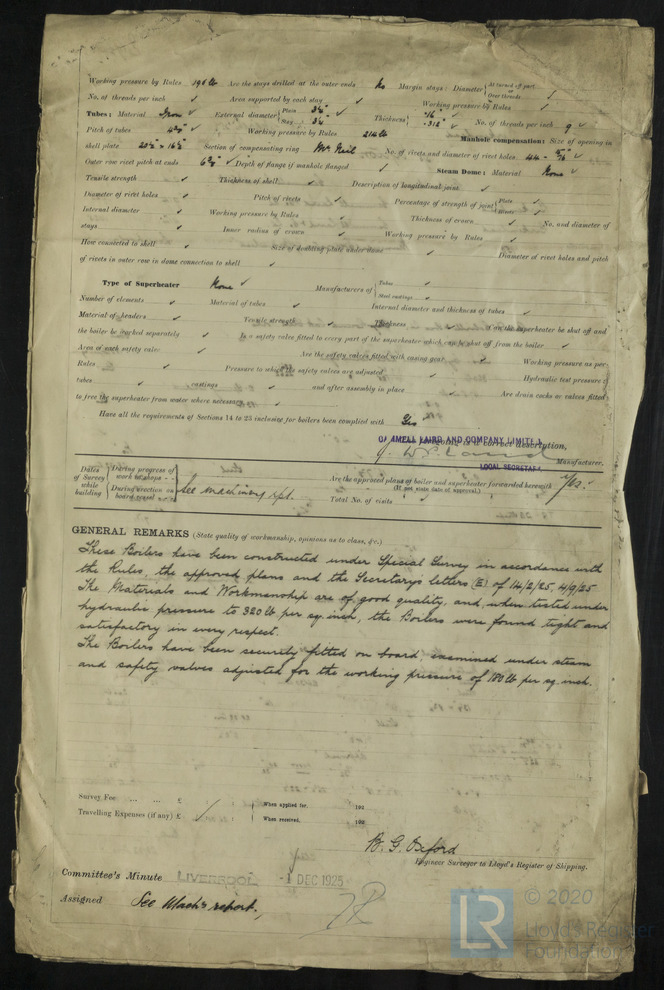 Working pressure by Rules 190 lb Are the stays drilled at the outer ends No Margin stays: Diameter { At turned off part or Over threads ✓
No. of threads per inch ✓ Area supported by each stay ✓ Working pressure by Rules ✓
Tubes: Material Iron ✓ External diameter { Plain 3½" Stay 3½" ✓ Thickness { ✓ No. of threads per inch 9 ✓
Pitch of tubes ✓ Working pressure by Rules 214 lb Manhole compensation: Size of opening in
shell plate Section of compensating ring McNeil No. of rivets and diameter of rivet holes 44 -
Outer row rivet pitch at ends ✓ Depth of flange if manhole flanged ✓ Steam Dome: Material None ✓
Tensile strength ✓ Thickness of shell ✓ Description of longitudinal joint ✓
Diameter of rivet holes ✓ Pitch of rivets ✓ Percentage of strength of joint { Plate ✓ Rivets ✓
Internal diameter ✓ Working pressure by Rules ✓ Thickness of crown ✓ No. and diameter of
stays ✓ Inner radius of crown ✓ Working pressure by Rules ✓
How connected to shell ✓ Size of doubling plate under dome ✓ Diameter of rivet holes and pitch
of rivets in outer row in dome connection to shell ✓
Type of Superheater None ✓ Manufacturers of { Tubes ✓ Steel castings ✓
Number of elements ✓ Material of tubes ✓ Internal diameter and thickness of tubes ✓
Material of headers ✓ Tensile strength ✓ Thickness ✓ Can the superheater be shut off and
the boiler be worked separately ✓ Is a safety valve fitted to every part of the superheater which can be shut off from the boiler ✓
Area of each safety valve ✓ Are the safety valves fitted with easing gear ✓ Working pressure as per
Rules ✓ Pressure to which the safety valves are adjusted ✓ Hydraulic test pressure :
tubes ✓ castings ✓ and after assembly in place ✓ Are drain cocks or valves fitted
to free the superheater from water where necessary ✓
Have all the requirements of Sections 14 to 23 inclusive for boilers been complied with Yes
CAMMELL LAIRD AND COMPANY LIMITED
is a correct description,
Manufacturer.
LOCAL SECRETARY
Dates of Survey while building { During progress of work in shops - - During erection on board vessel - - } See machinery rpt.
Are the approved plans of boiler and superheater forwarded herewith Yes.
(If not state date of approval.)
Total No. of visits
GENERAL REMARKS (State quality of workmanship, opinions as to class, &c.)
These Boilers have been constructed under Special Survey in accordance with
the Rules, the approved plans and the Secretary's letters (E) of 14/2/25, 4/9/25
The Materials and Workmanship are of good quality, and, when tested under
hydraulic pressure to 320 lb per sq inch, the Boilers were found tight and
satisfactory in every respect.
The Boilers have been securely fitted on board examined under steam
and safety valves adjusted for the working pressure of 180 lb per sq. inch.
Survey Fee ... ... £ : : When applied for, 192
Travelling Expenses (if any) £ ✓ : : When received, 192
B. G. Oxford
Engineer Surveyor to Lloyd's Register of Shipping.
Committee's Minute LIVERPOOL -1 DEC 1925
Assigned See Mach'y report.
© 2020
LR Lloyd's Register
Foundation